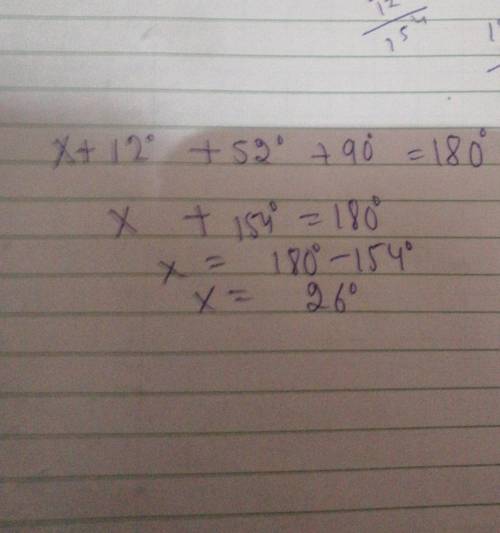 12
154
x + 12° + 52° + 90° = 180°
x + 154° = 180°
x = 180° - 154°
x = 26°